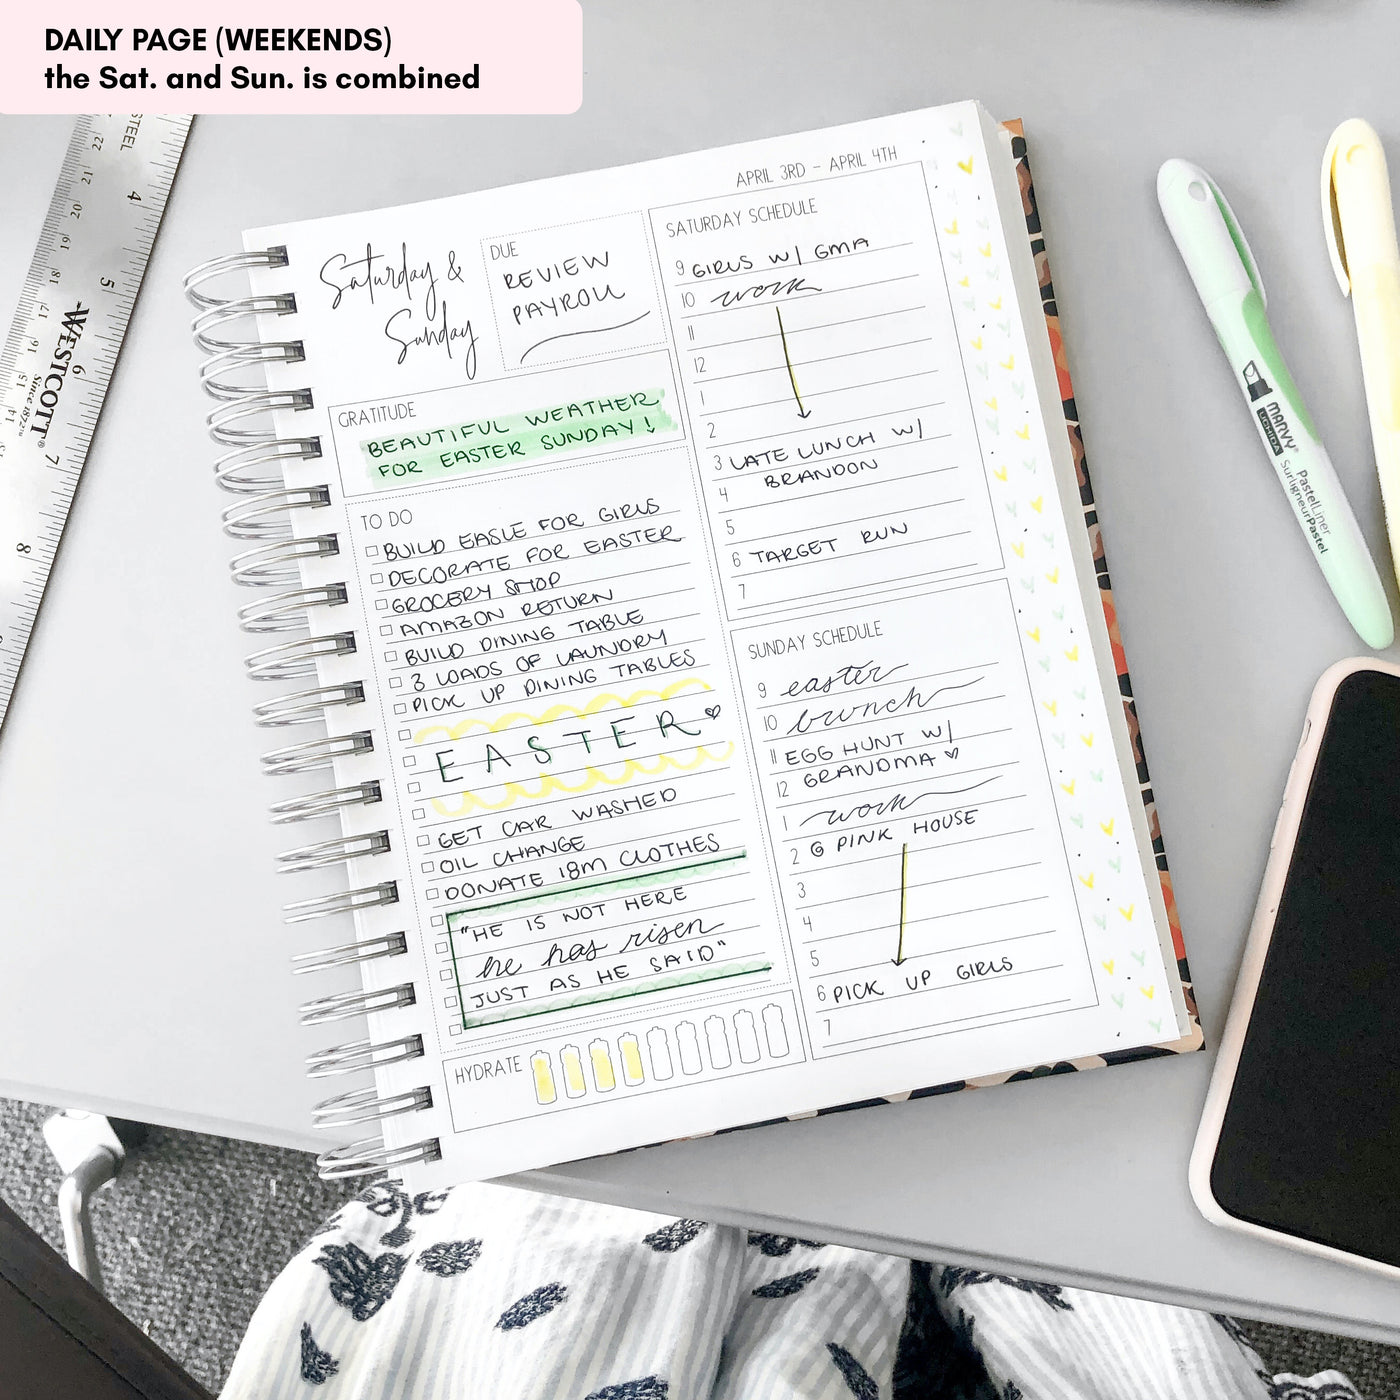 DAILY PAGE (WEEKENDS)
the Sat. and Sun. is combined
APRIL 3RD - APRIL 4TH
Saturday &
Sunday
DUE
REVIEW
PAYROLL
GRATITUDE
BEAUTIFUL WEATHER
FOR EASTER SUNDAY!
TO DO
BUILD EASLE FOR GIRLS
DECORATE FOR EASTER
GROCERY SHOP
AMAZON RETURN
BUILD DINING TABLE
3 LOADS OF LAUNDRY
PICK UP DINING TABLES
EASTER
GET CAR WASHED
OIL CHANGE
DONATE 18M CLOTHES
"HE IS NOT HERE
he has risen
JUST AS HE SAID"
HYDRATE
SATURDAY SCHEDULE
9 GIRLS W/ GMA
10 work
11
12
1
2
3 LATE LUNCH W/
4 BRANDON
5
6 TARGET RUN
7
SUNDAY SCHEDULE
9 easter
10 brunch
11 EGG HUNT W/
12 GRANDMA
1 work
2 @ PINK HOUSE
3
4
5
6 PICK UP GIRLS
7
STEEL
WESTCOTT®
Since 1872™
22
21
20
19
18
17
16
15
14
13
4
5
6
7
8
9
MARVY®
UCHIDA
PastelLiner
SurligneurPastel